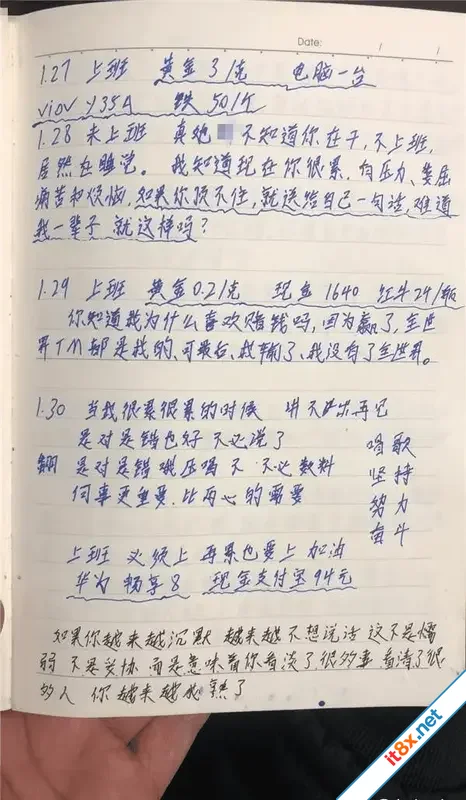 Date: / /
1.27 上班 黄金 3/克 电脑一台
viov y35A 铁 50/斤
1.28 未上班 真他 不知道你在干,不上班,
居然在睡觉。我知道现在你很累,有压力、委屈
病苦和烦恼,如果你顶不住,就送给自己一句话,难道
我一辈子 就这样吗?
1.29 上班 黄金0.21克 现金 1640 红牛24/瓶
你知道我为什么喜欢赌钱吗,因为赢了,全世
界TM都是我的、可最后、我输了、我没有了全世界。
1.30 当我很累很累的时候 讲不出再见
是对是错也好 不必说了
是对是错 不 不必
何事更重要,比两心的需要
唱歌
坚持
努力
奋斗
上班 必须上 再累也要上 加油
华为 畅享8 现金支付宝94元
如果你越来越沉默 越来越不想说话 这不是懦
弱 不是妥协 而是意味着你看淡了很多事 看清了很
多人 你越来越成熟了
it8x.net